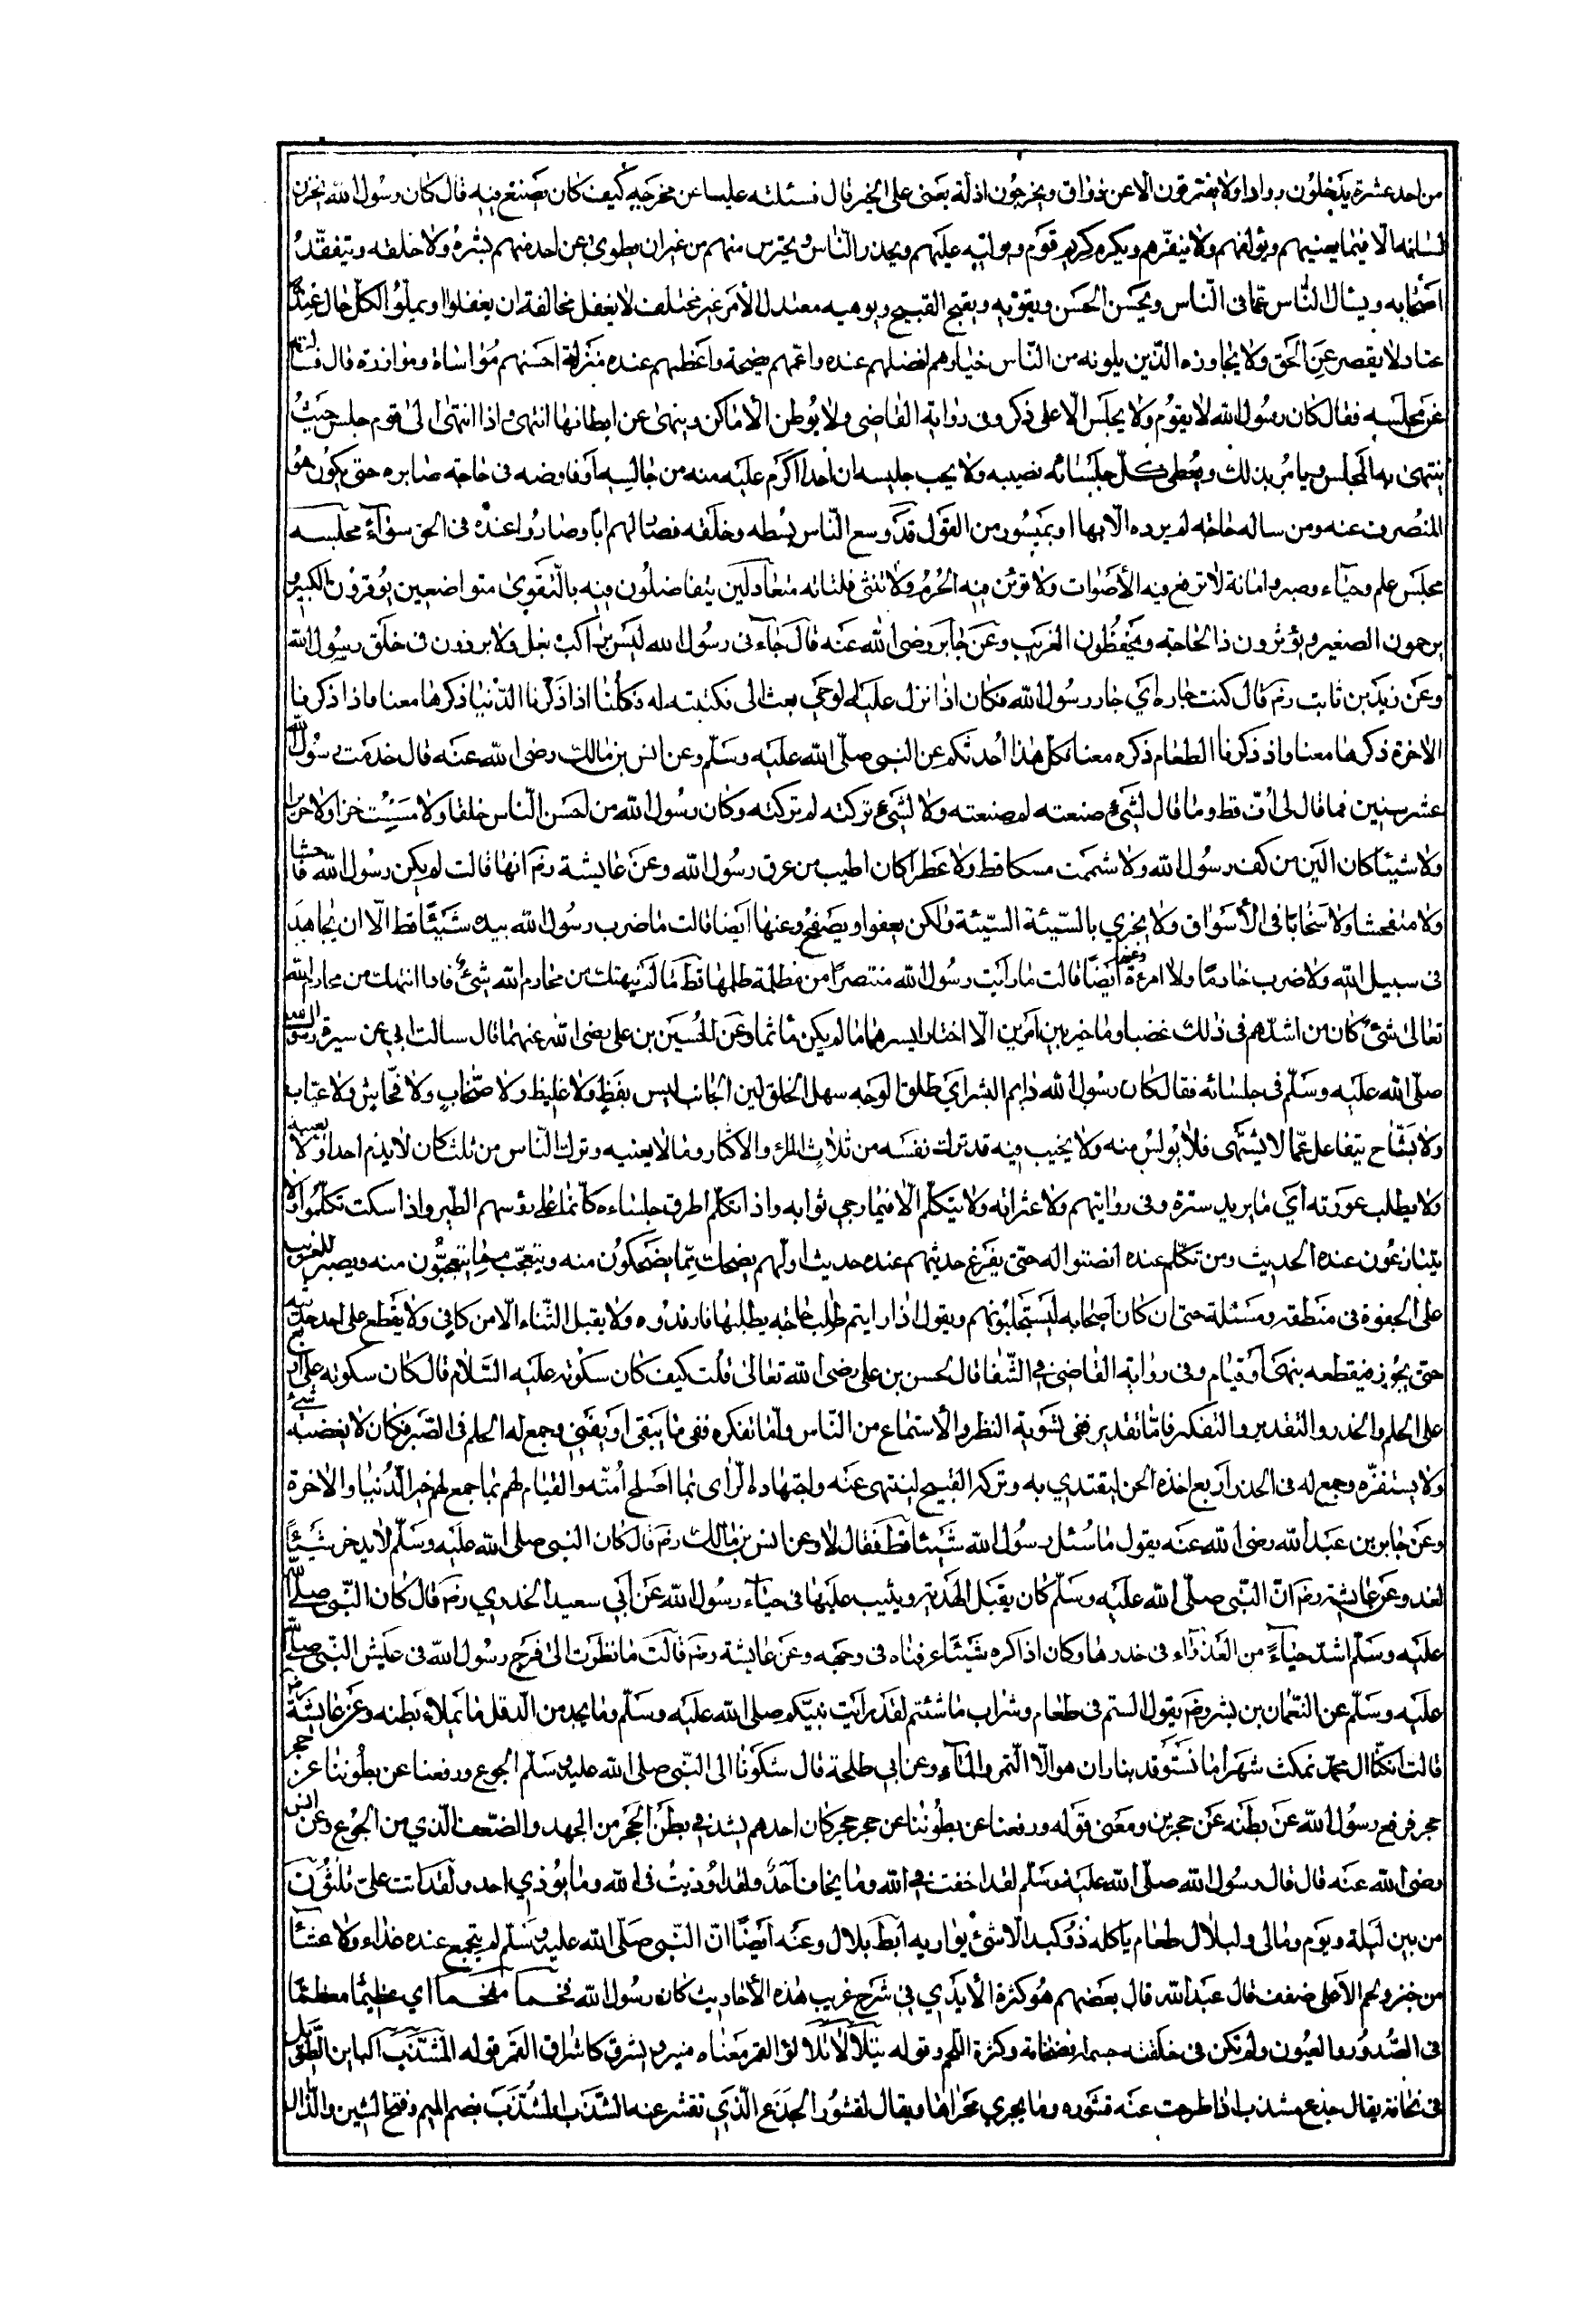 من احد عشرة يدخلون روادا ولا يفترقون الا عن ذواق ويخرجون ادلة يعنى على الخير قال فسئلته عليسا عن مخرجه كيف كان يصنع فيه قال كان رسول الله يخزن
لسانه الا فيما يعنيهم ويؤلفهم ولا ينفرهم ويكره كريم قوم ويوليه عليهم ويحذر الناس ويحترس منهم من غير ان يطوى عن احد منهم بشره ولا خلقه ويتفقد
اصحابه ويسال الناس عما فى الناس ويحسن الحسن ويقويه ويقبح القبيح ويوهيه معتدل الأمر غير مختلف لا يغفل مخالفة ان يغفلوا او يملوا لكل حال عنده
عتاد لا يقصر عن الحق ولا يجاوزه الذين يلونه من الناس خيارهم افضلهم عنده واعمهم نصيحة واعظمهم عنده منزلة احسنهم مؤاساة وموازرة قال فسالته
عن مجلسه فقال كان رسول الله لا يقوم ولا يجلس الا على ذكر وفى رواية القاضى ولا يوطن الاماكن وينهى عن ايطانها انتهى واذا انتهى الى قوم جلس حيث
ينتهى به المجلس ويامر بذلك ويعطى كل جلسائه نصيبه ولا يحب جليسه ان احدا اكرم عليه منه من جالسه او فاوضه فى حاجة صابره حتى يكون هو
المنصرف عنه ومن ساله حاجة لم يرده الا بها او بميسور من القول قد وسع الناس بسطه وخلقه فصار لهم ابا وصاروا عنده فى الحق سوآء مجلسه
مجلس علم وحيآء وصبر وامانة لا ترفع فيه الأصوات ولا تؤبن فيه الحرم ولا تنثى فلتاته متعادلين يتفاضلون فيه بالتقوى متواضعين يوقرون الكبير
يرحمون الصغير ويؤثرون ذا الحاجة ويحفظون الغريب وعن جابر رضى الله عنه قال جآء نى رسول الله ليس براكب بغل ولا برذون فى خلق رسول الله
وعن زيد بن ثابت رضم قال كنت جاره اي جار رسول الله فكان اذا نزل عليه الوحي بعث الى فكتبته له فكلنا اذا ذكرنا الدنيا ذكرها معنا واذا ذكرنا
الاخرة ذكرها معنا واذ ذكرنا الطعام ذكره معنا فكل هذا احدثكم عن النبى صلى الله عليه وسلم وعن انس بن مالك رضى الله عنه قال خدمت رسول الله
عشر سنين فما قال لى أف قط وما قال لشئ صنعته لم صنعته ولا لشئ تركته لم تركته وكان رسول الله من احسن الناس خلقا ولا مسست خزا ولا حريرا
ولا شيئا كان الين من كف رسول الله ولا شممت مسكا قط ولا عطرا كان اطيب من عرق رسول الله وعن عايشة رضم انها قالت لم يكن رسول الله فاحشا
ولا متفحشا ولا سخابا فى الأسواق ولا يجزي بالسيئة السيئة ولكن يعفوا ويصفح وعنها ايضا قالت ما ضرب رسول الله بيده شيئا قط الا ان يجاهد
فى سبيل الله ولا ضرب خادما ولا امرءة وعنها ايضا قالت ما رايت رسول الله منتصرا من مظلمة ظلمها قط ما لم ينتهك من محارم الله شئ فاذا انتهك من محارم الله
تعالى شئ كان من اشدهم فى ذلك غضبا وما خير بين امرين الا اختار ايسرهما ما لم يكن ماثما وعن الحسين بن على رضى الله عنهما قال سالت ابي عن سيرة رسول الله
صلى الله عليه وسلم فى جلسائه فقال كان رسول الله دايم البشر اي طلق الوجه سهل الخلق لين الجانب ليس بفظ ولا غليظ ولا صخاب ولا فحاش ولا عياب
ولا مداح يتغافل عما لا يشتهى فلا يؤلس منه ولا يخيب فيه قد ترك نفسه من ثلاث المرء والاكثار وما لا يعنيه وترك الناس من ثلث كان لا يذم احدا ولا يعيبه
ولا يطلب عورته اي ما يريد سترة وفى روايتهم ولا عثراته ولا يتكلم الا فيما رجي ثوابه واذا تكلم اطرق جلساءه كانما على رؤسهم الطير واذا سكت تكلموا ولا
يتنازعون عنده الحديث ومن تكلم عنده انصتوا له حتى يفرغ حديثهم عنده حديث اولهم يضحك مما يضحكون منه ويتعجب مما يتعجبون منه ويصبر للغريب
على الجفوة فى منطقه ومسئلة حتى ان كان اصحابه ليستجلبونهم ويقول اذا رايتم طالب حاجة يطلبها فارفدوه ولا يقبل الثناء الا من كافي ولا يقطع على احد حديثه
حتى يجوز فيقطعه بنهى او قيام وفى رواية القاضى في الشفا قال الحسن بن على رضى الله تعالى قلت كيف كان سكوته عليه السلام قال كان سكوته على اربع
على الحلم والحذر والتقدير والتفكر فاما تقديره ففى تسوية النظر والأستماع من الناس واما تفكره ففى ما يبقى او يفنى وجمع له الحلم فى الصبر فكان لا يغضبه شئ
ولا يستفزه وجمع له فى الحذر اربع اخذه الحسن ليقتدي به وتركه القبيح لينتهى عنه واجتهاد الراى بما اصلح امته والقيام لهم بما جمع لهم خير الدنيا والاخرة
وعن جابر بن عبد الله رضى الله عنه يقول ما سئل رسول الله شيئا قط فقال لا وعن انس بن مالك رضم قال كان النبى صلى الله عليه وسلم لا يدخر شيئا
لغد وعن عايشة رضم ان النبى صلى الله عليه وسلم كان يقبل الهدية ويثيب عليها فى حيآء رسول الله عن ابي سعيد الخدري رضم قال كان النبى صلى الله
عليه وسلم اشد حيآء من العذرآء فى خدرها وكان اذا كره شيئا عرفناه فى وجهه وعن عايشة رضم قالت ما نظرت الى فرج رسول الله فى عيش النبى صلى الله
عليه وسلم عن النعمان بن بشير رضم يقول الستم فى طعام وشراب ما شئتم لقد رايت نبيكم صلى الله عليه وسلم وما يجد من الدقل ما يملاء بطنه وعن عايشة رضم
قالت ان كنا ال محمد نمكث شهرا ما نستوقد بنار ان هو الا التمر والمآء وعن ابى طلحة قال شكونا الى النبى صلى الله عليه وسلم الجوع ورفعنا عن بطوننا عن حجر
حجر فرفع رسول الله عن بطنه عن حجرين ومعنى قوله ورفعنا عن بطوننا عن حجر حجر كان احدهم يشد في بطن الحجر من الجهد والضعف الذي من الجوع وعن انس
رضى الله عنه قال قال رسول الله صلى الله عليه وسلم لقد اخفت فى الله وما يخاف احد ولقد اوذيت فى الله وما يوذي احد ولقد اتت على ثلثون
من بين ليلة ويوم ومالى ولبلال طعام ياكله ذو كبد الا شئ يواريه ابط بلال وعنه ايضا ان النبى صلى الله عليه وسلم لم يجتمع عنده غداء ولا عشآ
من خبز ولحم الا على ضفف قال عبد الله قال بعضهم هو كثرة الأيدي في شرح غريب هذه الأحاديث كان رسول الله فخما مفخما اى عظيما معظما
فى الصدور والعيون ولم تكن فى خلقته جسما وضخامة وكثرة اللحم وقوله يتلألأ تلألؤ القمر معناه منير ويشرق كاشراق القمر قوله المشذب الباين الطول
فى نحافة يقال جذع مشذب اذا طرحت عنه قشوره وما يجري مجراها ويقال لقشور الجذع الذي تقشر عنه الشذب المشذب بضم الميم وفتح الشين والذال